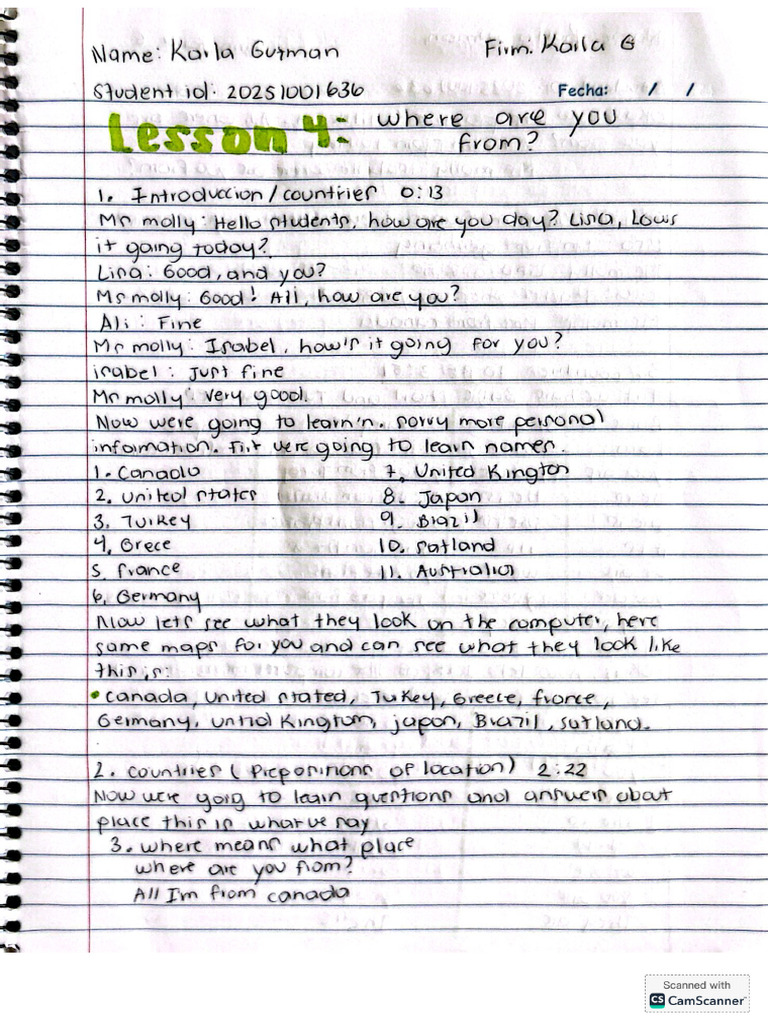 Name: Karla Guzman Firm: Karla G
Student id: 20251001636 Fecha: / /
Lesson 4: where are you
from?
1. Introduccion/countries 0:13
Ms molly: Hello students, how are you day? Lisa, Lows
it going today?
Lisa: Good, and you?
Ms molly: Good! Ali, how are you?
Ali: Fine
Ms molly: Isabel, how's it going for you?
isabel: Just fine
Ms molly: very good.
Now were going to learn'n. sorry more personal
information. First were going to learn names.
1. Canada 7. United Kington
2. united states 8. Japan
3. Turkey 9. Brazil
4. Grece 10. sutland
5. france 11. Australia
6. Germany
Now lets see what they look on the computer, here
same maps for you and can see what they look like
this is:
• Canada, United stated, Tukey, Greece, france,
Germany, untid Kingtum, japon, Brazil, sutland.
2. countries (Prepositions of location) 2:22
Now were going to learn questions and answers about
place this is what ve say
3. where means what place
where are you from?
All I'm from canada
Scanned with
CS CamScanner